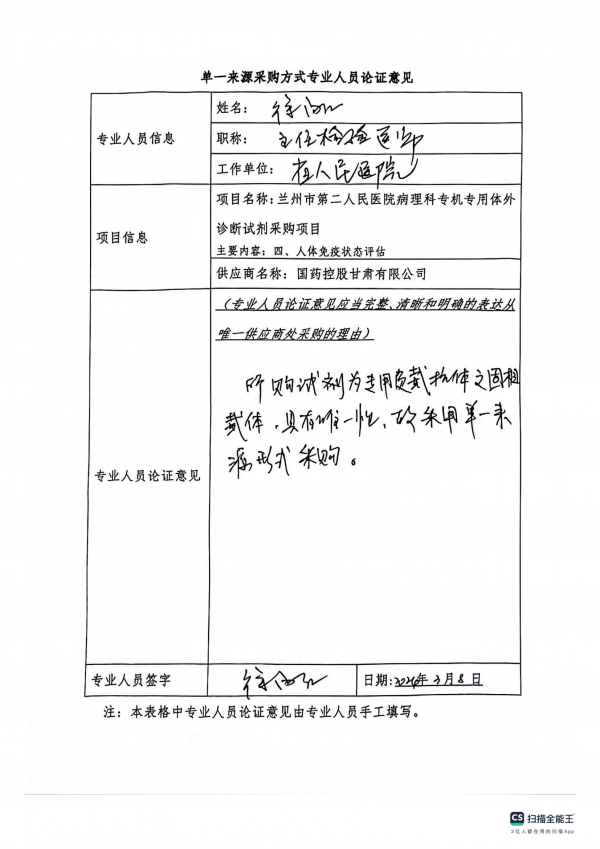 单一来源采购方式专业人员论证意见
专业人员信息
姓名：徐
职称：主任检验医师
工作单位：省人民医院
项目信息
项目名称：兰州市第二人民医院病理科专机专用体外
诊断试剂采购项目
主要内容：四、人体免疫状态评估
供应商名称：国药控股甘肃有限公司
专业人员论证意见
（专业人员论证意见应当完整、清晰和明确的表达从
唯一供应商处采购的理由）
所购试剂为专用负载抗体之固相
载体，具有唯一性，故采用单一来
源形式采购。
专业人员签字
徐
日期：2024年3月8日
注：本表格中专业人员论证意见由专业人员手工填写。
CS 扫描全能王
3亿人都在用的扫描App